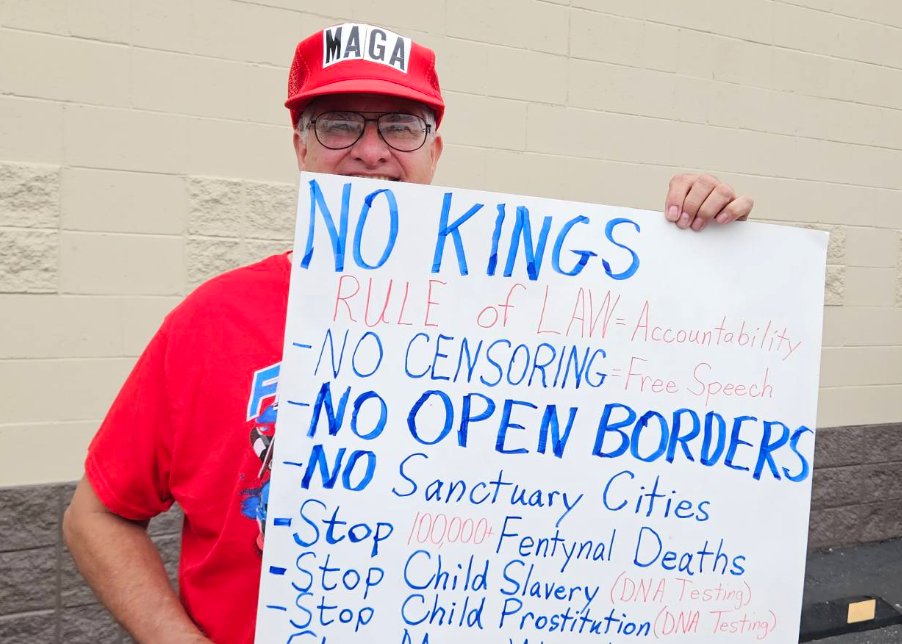 MAGA
NO KINGS
RULE of LAW = Accountability
- NO CENSORING = Free Speech
- NO OPEN BORDERS
- NO Sanctuary Cities
- Stop 100,000+ Fentynal Deaths
- Stop Child Slavery (DNA Testing)
- Stop Child Prostitution (DNA Testing)